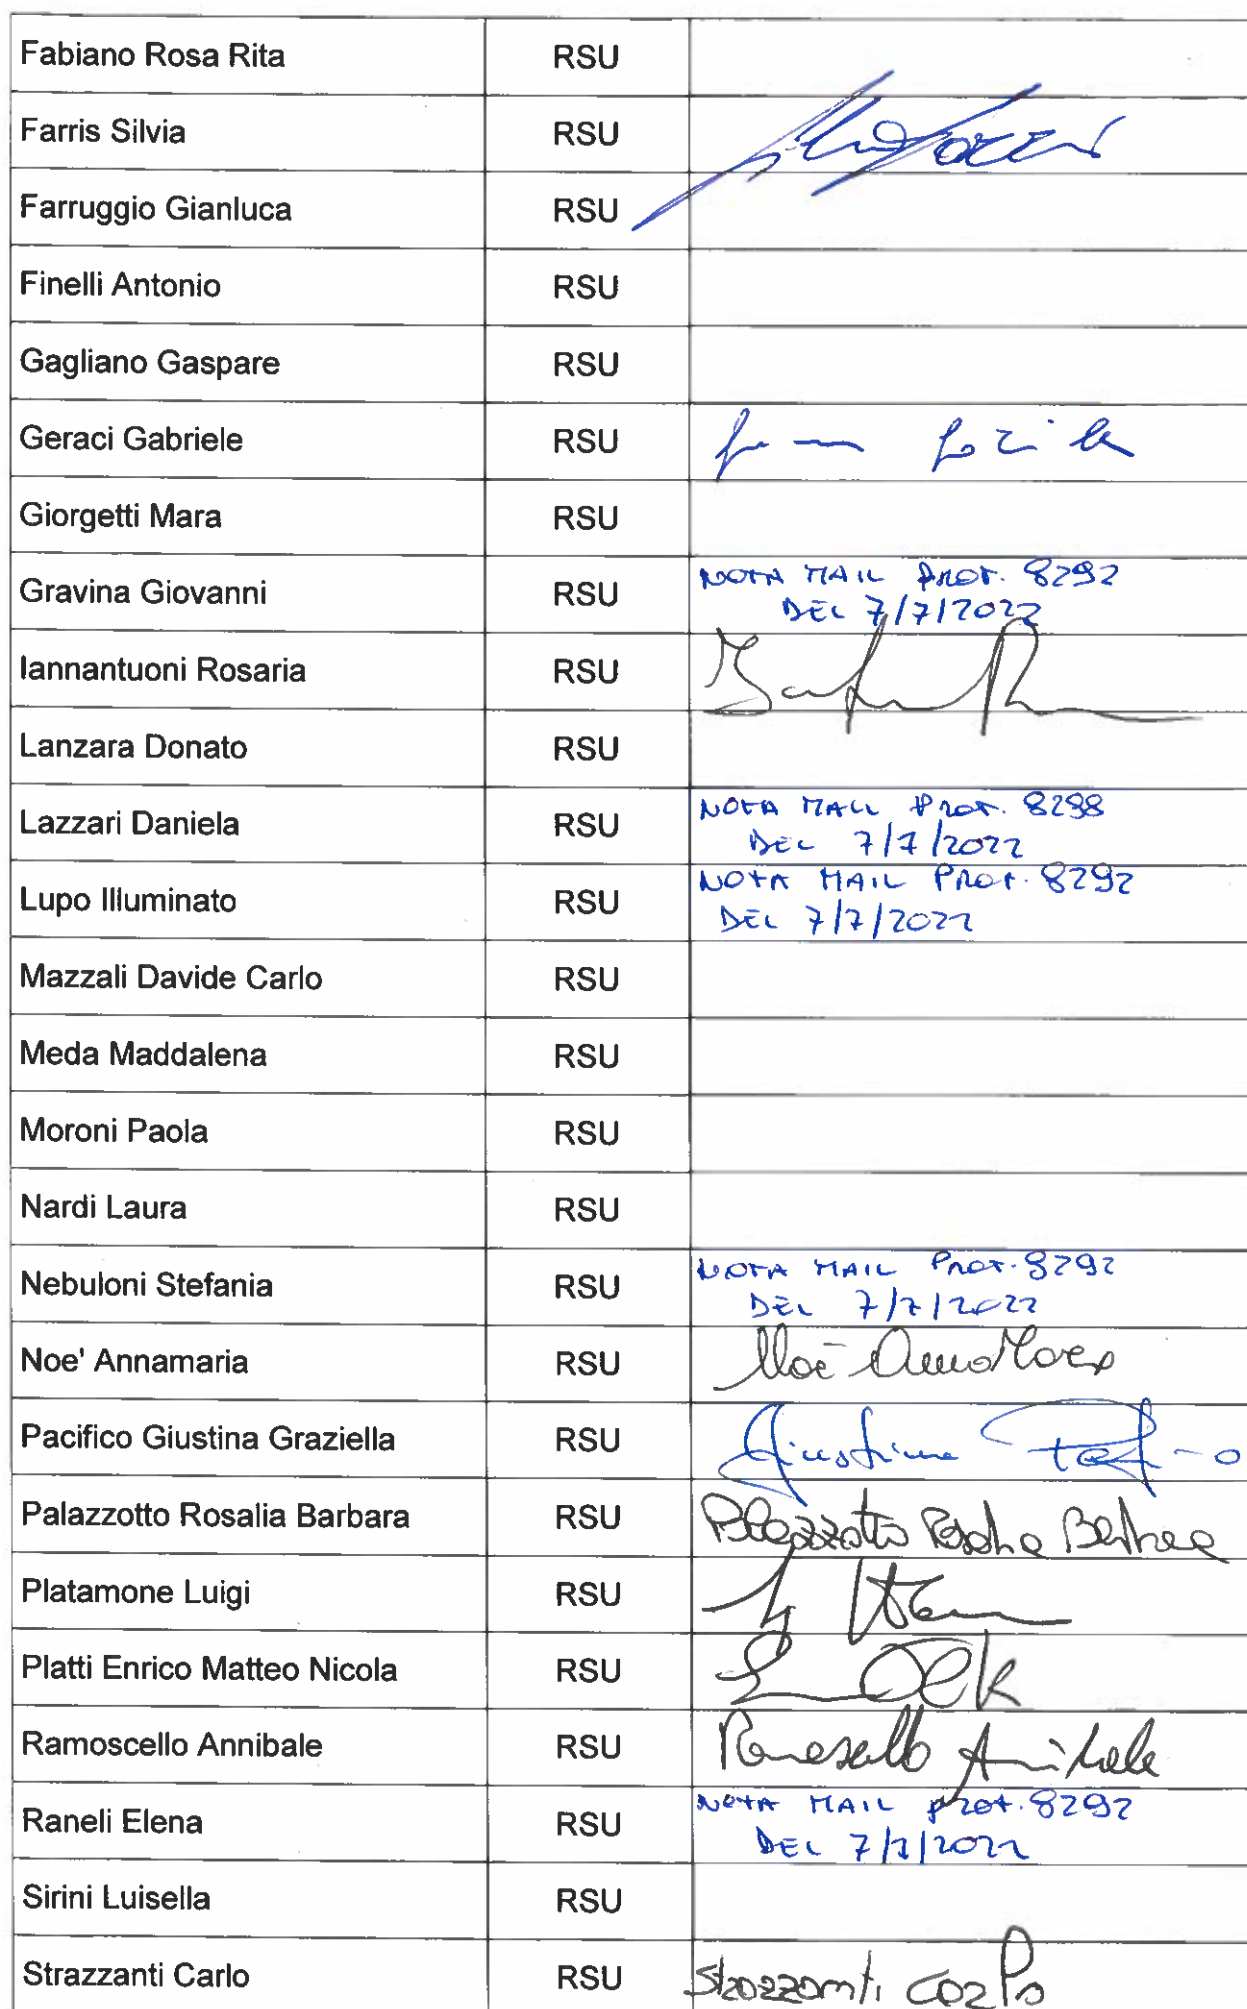 Fabiano Rosa Rita RSU
Farris Silvia RSU
Farruggio Gianluca RSU
Finelli Antonio RSU
Gagliano Gaspare RSU
Geraci Gabriele RSU
Giorgetti Mara RSU
Gravina Giovanni RSU NOTA MAIL PROT. 8292
DEL 7/7/2022
Iannantuoni Rosaria RSU
Lanzara Donato RSU
Lazzari Daniela RSU NOTA MAIL PROT. 8298
DEL 7/7/2022
Lupo Illuminato RSU NOTA MAIL PROT. 8292
DEL 7/7/2022
Mazzali Davide Carlo RSU
Meda Maddalena RSU
Moroni Paola RSU
Nardi Laura RSU
Nebuloni Stefania RSU NOTA MAIL PROT. 8292
DEL 7/7/2022
Noe' Annamaria RSU Noè Annamaria
Pacifico Giustina Graziella RSU Giustina
Palazzotto Rosalia Barbara RSU Palazzotto Rosalia Barbara
Platamone Luigi RSU
Platti Enrico Matteo Nicola RSU
Ramoscello Annibale RSU Ramoscello Annibale
Raneli Elena RSU NOTA MAIL PROT. 8292
DEL 7/7/2022
Sirini Luisella RSU
Strazzanti Carlo RSU Strazzanti Carlo